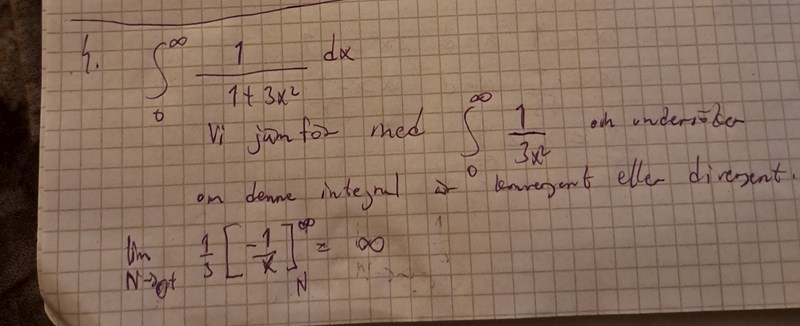 4. ∫₀^∞ 1/(1+3x²) dx
Vi jämför med ∫₀^∞ 1/(3x²) och undersöker
om denne integral är konvergent eller divergent.
lim N→0+ 1/3 [-1/x]_N^∞ = ∞